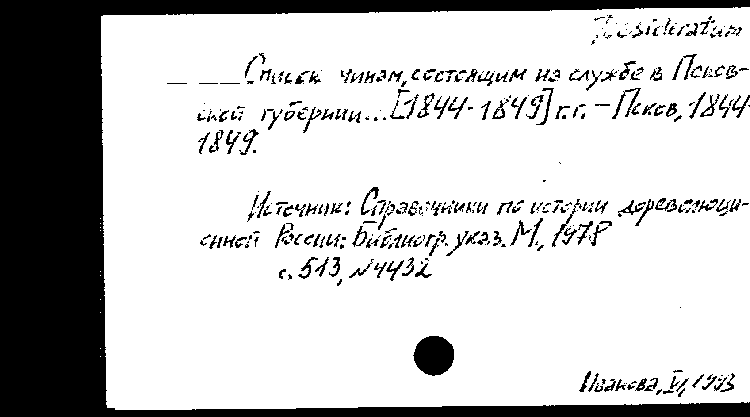 Desideratum
Список чинам, состоящим на службе в Псков-
ской губернии... [1844-1849] г.г. – Псков, 1844-
1849.
Источник: Справочники по истории дореволюци-
онной России: Библиогр. указ. М., 1978
с. 513, №4432
Иванова, VI, 1993